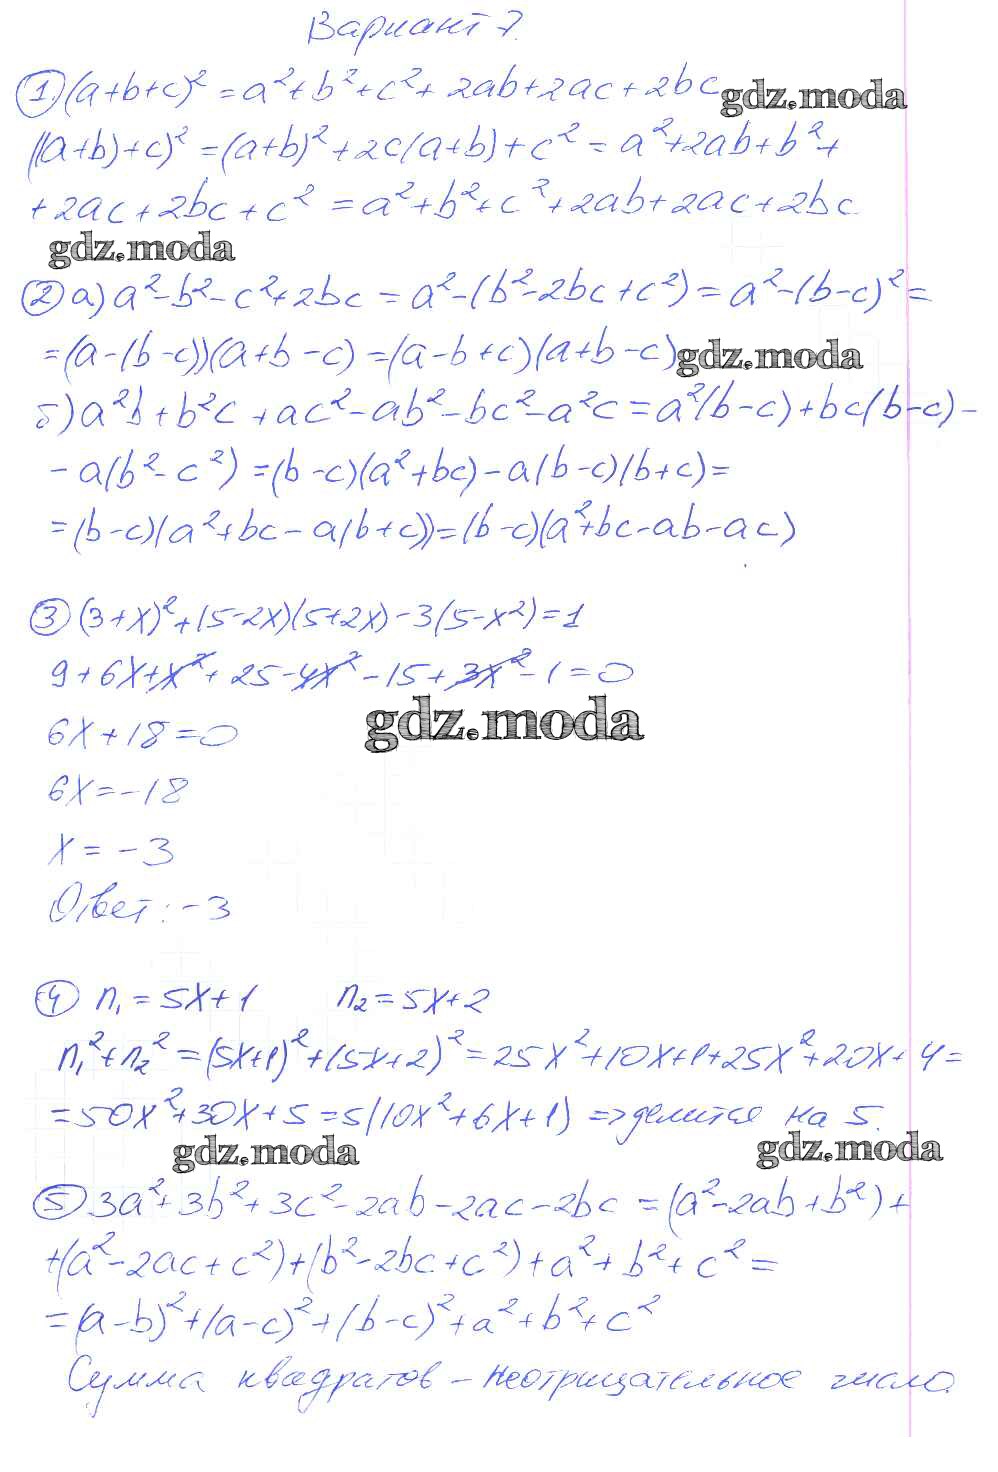 Вариант 7.
① (a+b+c)² = a²+b²+c²+2ab+2ac+2bc gdz.moda
((a+b)+c)² = (a+b)²+2c(a+b)+c² = a²+2ab+b²+
+2ac+2bc+c² = a²+b²+c²+2ab+2ac+2bc.
gdz.moda
② а) a²-b²-c²+2bc = a²-(b²-2bc+c²) = a²-(b-c)² =
=(a-(b-c))(a+b-c) = (a-b+c)(a+b-c) gdz.moda
б) a²b+b²c+ac²-ab²-bc²-a²c = a²(b-c)+bc(b-c)-
-a(b²-c²) = (b-c)(a²+bc)-a(b-c)(b+c) =
=(b-c)(a²+bc-a(b+c)) = (b-c)(a²+bc-ab-ac)
③ (3+x)²+(5-2x)(5+2x)-3(5-x²)=1
9+6x+x²+25-4x²-15+3x²-1=0
gdz.moda
6x+18=0
6x=-18
x=-3
Ответ: -3
④ n₁=5x+1 n₂=5x+2
n₁²+n₂²=(5x+1)²+(5x+2)²=25x²+10x+1+25x²+20x+4=
=50x²+30x+5=5(10x²+6x+1) => делится на 5.
gdz.moda gdz.moda
⑤ 3a²+3b²+3c²-2ab-2ac-2bc = (a²-2ab+b²)+
+(a²-2ac+c²)+(b²-2bc+c²)+a²+b²+c² =
=(a-b)²+(a-c)²+(b-c)²+a²+b²+c²
Сумма квадратов - неотрицательное число.